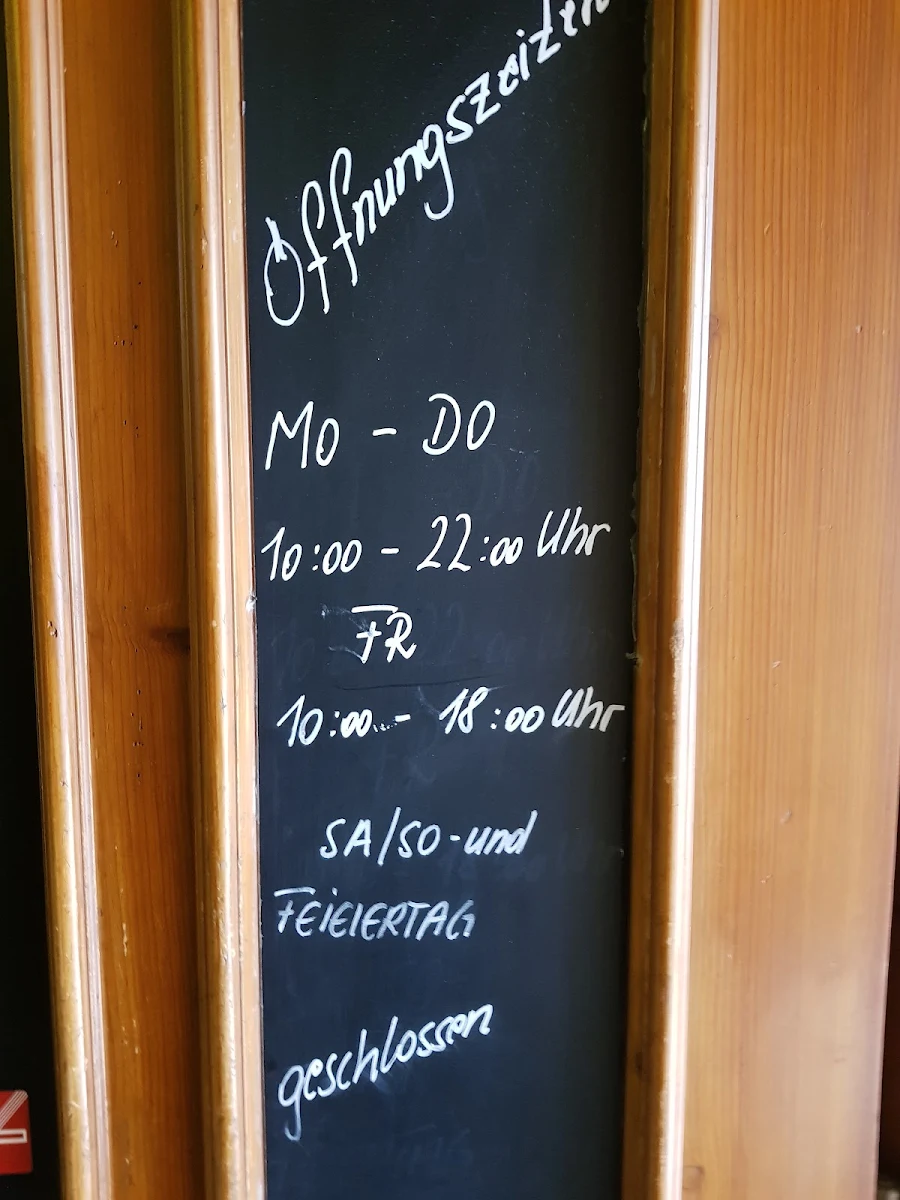 Öffnungszeiten
MO - DO
10:00 - 22:00 Uhr
FR
10:00 - 18:00 Uhr
SA/SO - und
FEIEIERTAG
geschlossen